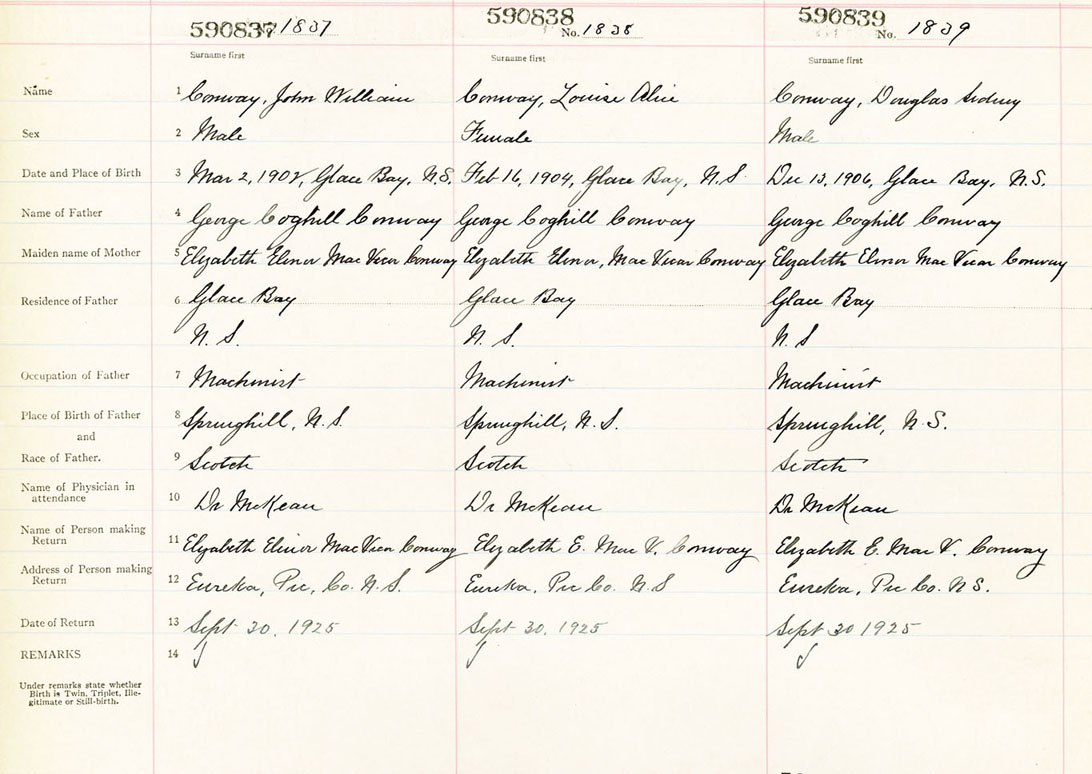 590837 No. 1837 590838 No. 1838 590839 No. 1839
Surname first Surname first Surname first
Name 1 Conway, John William Conway, Louise Alice Conway, Douglas Sidney
Sex 2 Male Female Male
Date and Place of Birth 3 Mar 2, 1902, Glace Bay, N.S. Feb 16, 1904, Glace Bay, N.S. Dec 13, 1906, Glace Bay, N.S.
Name of Father 4 George Coghill Conway George Coghill Conway George Coghill Conway
Maiden name of Mother 5 Elizabeth Elinor MacVicar Conway Elizabeth Elinor, MacVicar Conway Elizabeth Elinor MacVicar Conway
Residence of Father 6 Glace Bay Glace Bay Glace Bay
N. S. N. S. N. S
Occupation of Father 7 Machinist Machinist Machinist
Place of Birth of Father 8 Springhill, N.S. Springhill, N.S. Springhill, N.S.
and
Race of Father. 9 Scotch Scotch Scotch
Name of Physician in
attendance 10 Dr McKean Dr McKean Dr McKean
Name of Person making
Return 11 Elizabeth Elinor MacVicar Conway Elizabeth E. Mac V. Conway Elizabeth E. Mac V. Conway
Address of Person making
Return 12 Eureka, Pic, Co. N.S. Eureka, Pic Co. N.S Eureka, Pic Co. N S.
Date of Return 13 Sept 30, 1925 Sept 30, 1925 Sept 30 1925
REMARKS 14
Under remarks state whether
Birth is Twin, Triplet, Ille-
gitimate or Still-birth.